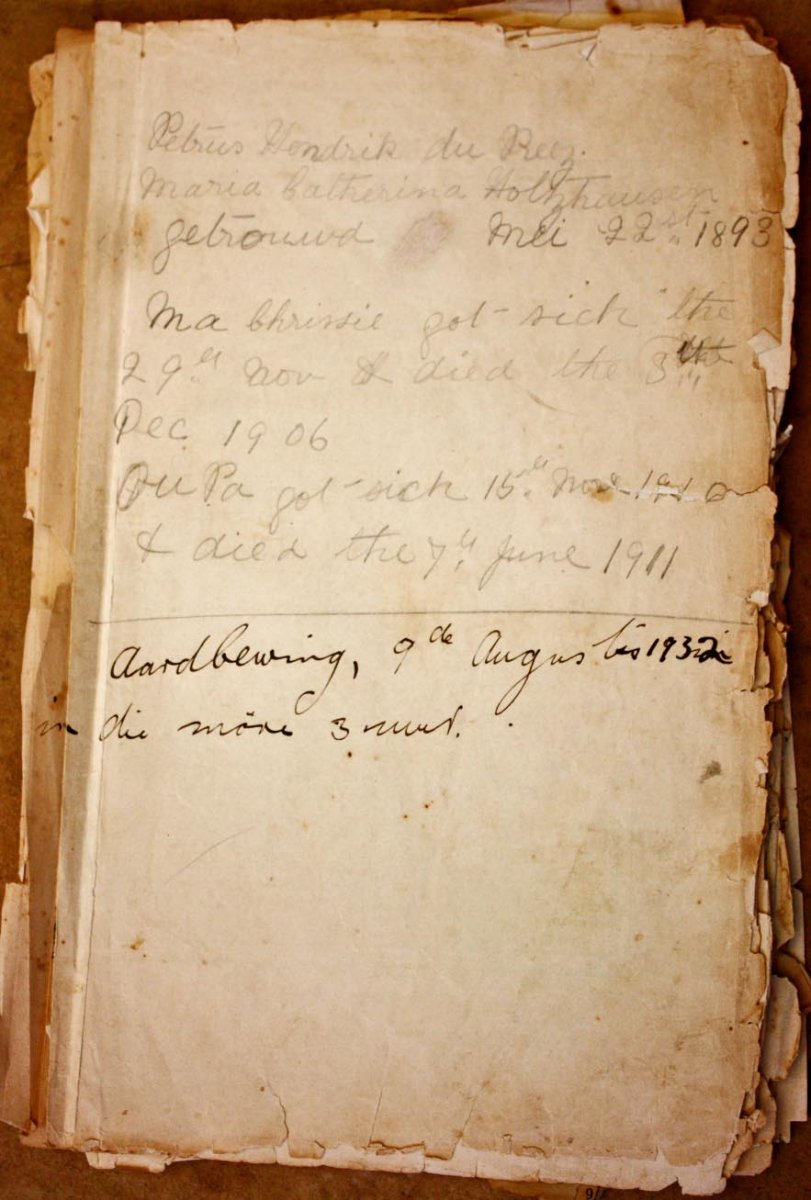 Petrus Hendrik du Preez.
Maria Catherina Holtzhausen
getrouwd Mei 22st. 1893
Ma Chrissie got sick the
29st Nov & died the 3th
Dec 1906
Ou Pa got sick 15th Nov 1910
& died the 7th June 1911
Aardbewing, 9de Augustus 1932
in die môre 3 uur.